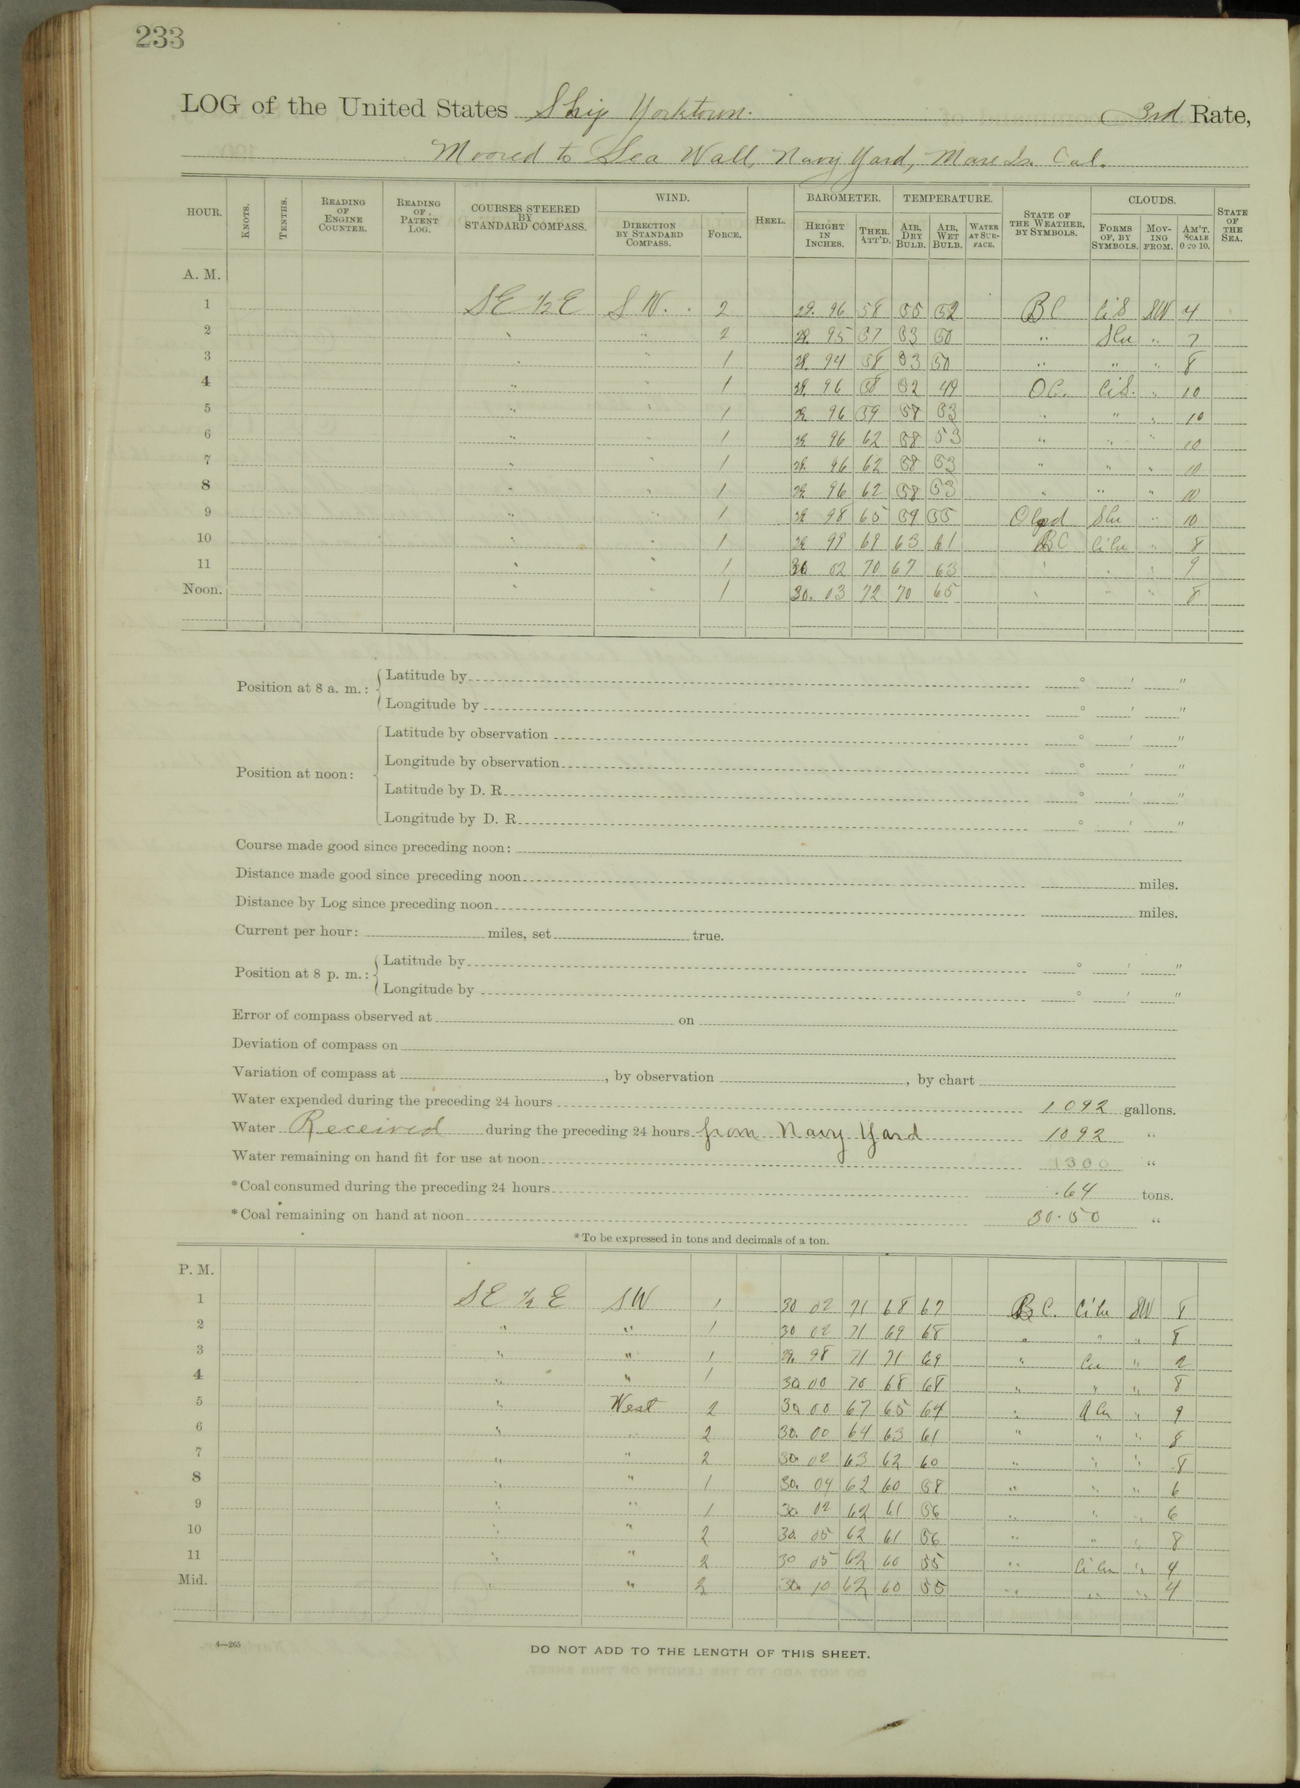 233
LOG of the United States Ship Yorktown. 3rd Rate,
Moored to Sea Wall, Navy Yard, Mare Is. Cal.
HOUR. KNOTS. TENTHS. READING OF ENGINE COUNTER. READING OF PATENT LOG. COURSES STEERED BY STANDARD COMPASS. WIND. DIRECTION BY STANDARD COMPASS. FORCE. HEEL. BAROMETER. HEIGHT IN INCHES. THER. ATT'D. TEMPERATURE. AIR, DRY BULB. AIR, WET BULB. WATER AT SUR-FACE. STATE OF THE WEATHER, BY SYMBOLS. CLOUDS. FORMS OF, BY SYMBOLS. MOV-ING FROM. AM'T. SCALE 0 TO 10. STATE OF THE SEA.
A. M.
1 SE ½ E S W. 2 29. 96 58 55 52 BC CiS SW 4
2 " " 2 29. 95 57 53 50 " SCu " 7
3 " " 1 29. 94 58 53 50 " " " 8
4 " " 1 29. 96 58 52 49 OC. CiS. " 10
5 " " 1 29. 96 59 58 53 " " " 10
6 " " 1 29. 96 62 58 53 " " " 10
7 " " 1 29. 96 62 58 53 " " " 10
8 " " 1 29. 96 62 58 53 " " " 10
9 " " 1 29. 98 65 59 55 SCu " 10
10 " " 1 29. 99 69 63 61 BC CiCu " 8
11 " " 1 30 02 70 67 63 " " " 9
Noon. " " 1 30. 03 72 70 65 " " " 8
Position at 8 a. m.: Latitude by ° ' "
Longitude by ° ' "
Position at noon: Latitude by observation ° ' "
Longitude by observation ° ' "
Latitude by D. R. ° ' "
Longitude by D. R. ° ' "
Course made good since preceding noon:
Distance made good since preceding noon miles.
Distance by Log since preceding noon miles.
Current per hour: miles, set true.
Position at 8 p. m.: Latitude by ° ' "
Longitude by ° ' "
Error of compass observed at on
Deviation of compass on
Variation of compass at , by observation , by chart
Water expended during the preceding 24 hours 1092 gallons.
Water Received during the preceding 24 hours from Navy Yard 1092 "
Water remaining on hand fit for use at noon 1300 "
*Coal consumed during the preceding 24 hours .64 tons.
*Coal remaining on hand at noon 30.50 "
*To be expressed in tons and decimals of a ton.
P. M.
1 SE ½ E SW 1 30 02 71 68 67 BC. CiCu SW 8
2 " " 1 30 02 71 69 68 " " " 8
3 " " 1 29. 98 71 71 69 " Cu " 2
4 " " 1 30. 00 70 68 68 " " " 8
5 " West 2 30. 00 67 65 64 " ACu " 9
6 " " 2 30. 00 64 63 61 " " " 8
7 " " 2 30. 02 63 62 60 " " " 8
8 " " 1 30. 04 62 60 58 " " " 6
9 " " 1 30. 02 62 61 56 " " " 6
10 " " 2 30. 05 62 61 56 " " " 8
11 " " 2 30 05 62 60 55 " CiCu " 4
Mid. " " 2 30. 10 62 60 55 " " " 4
4—265
DO NOT ADD TO THE LENGTH OF THIS SHEET.